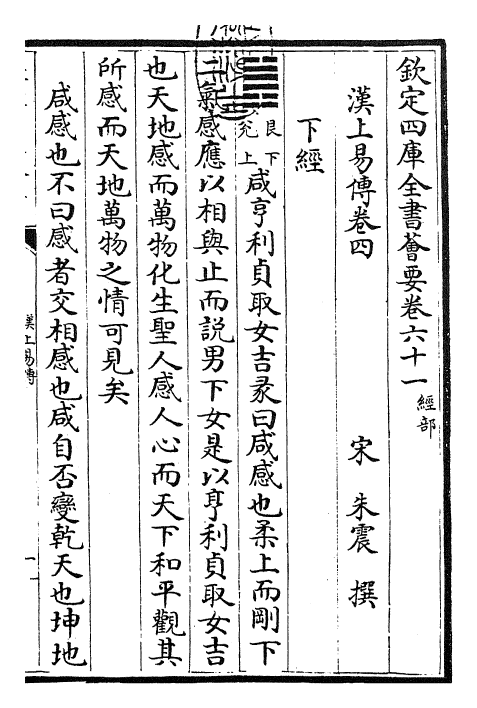 欽定四庫全書薈要卷六十一經部
漢上易傳卷四 宋 朱震 撰
下經
艮下兌上咸亨利貞取女吉彖曰咸感也柔上而剛下
二氣感應以相與止而說男下女是以亨利貞取女吉
也天地感而萬物化生聖人感人心而天下和平觀其
所感而天地萬物之情可見矣
咸感也不曰感者交相感也咸自否變乾天也坤地
漢上易傳
一